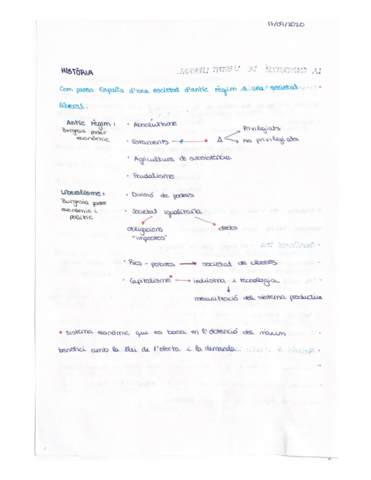 17/09/2020
HISTÒRIA
Com passa España d'una societat d'antic règim a una societat
liberal.
Antic règim:
Burgesia poder
econòmic
• Absolutisme
• Estaments → Δ Privilegiats
no privilegiats
• Agricultura de subsistència
• Feudalisme
Liberalisme:
Burgesia poder
econòmic i
polític
• Divisió de poders
• Societat igualitària
obligacions
"impostos"
drets
• Rics - pobres → societat de classes
• Capitalisme* → indústria i tecnologia
mecanització del sistema productiu
* sistema econòmic que es basa en l'obtenció del màxim
benefici amb la llei de l'oferta i la demanda.